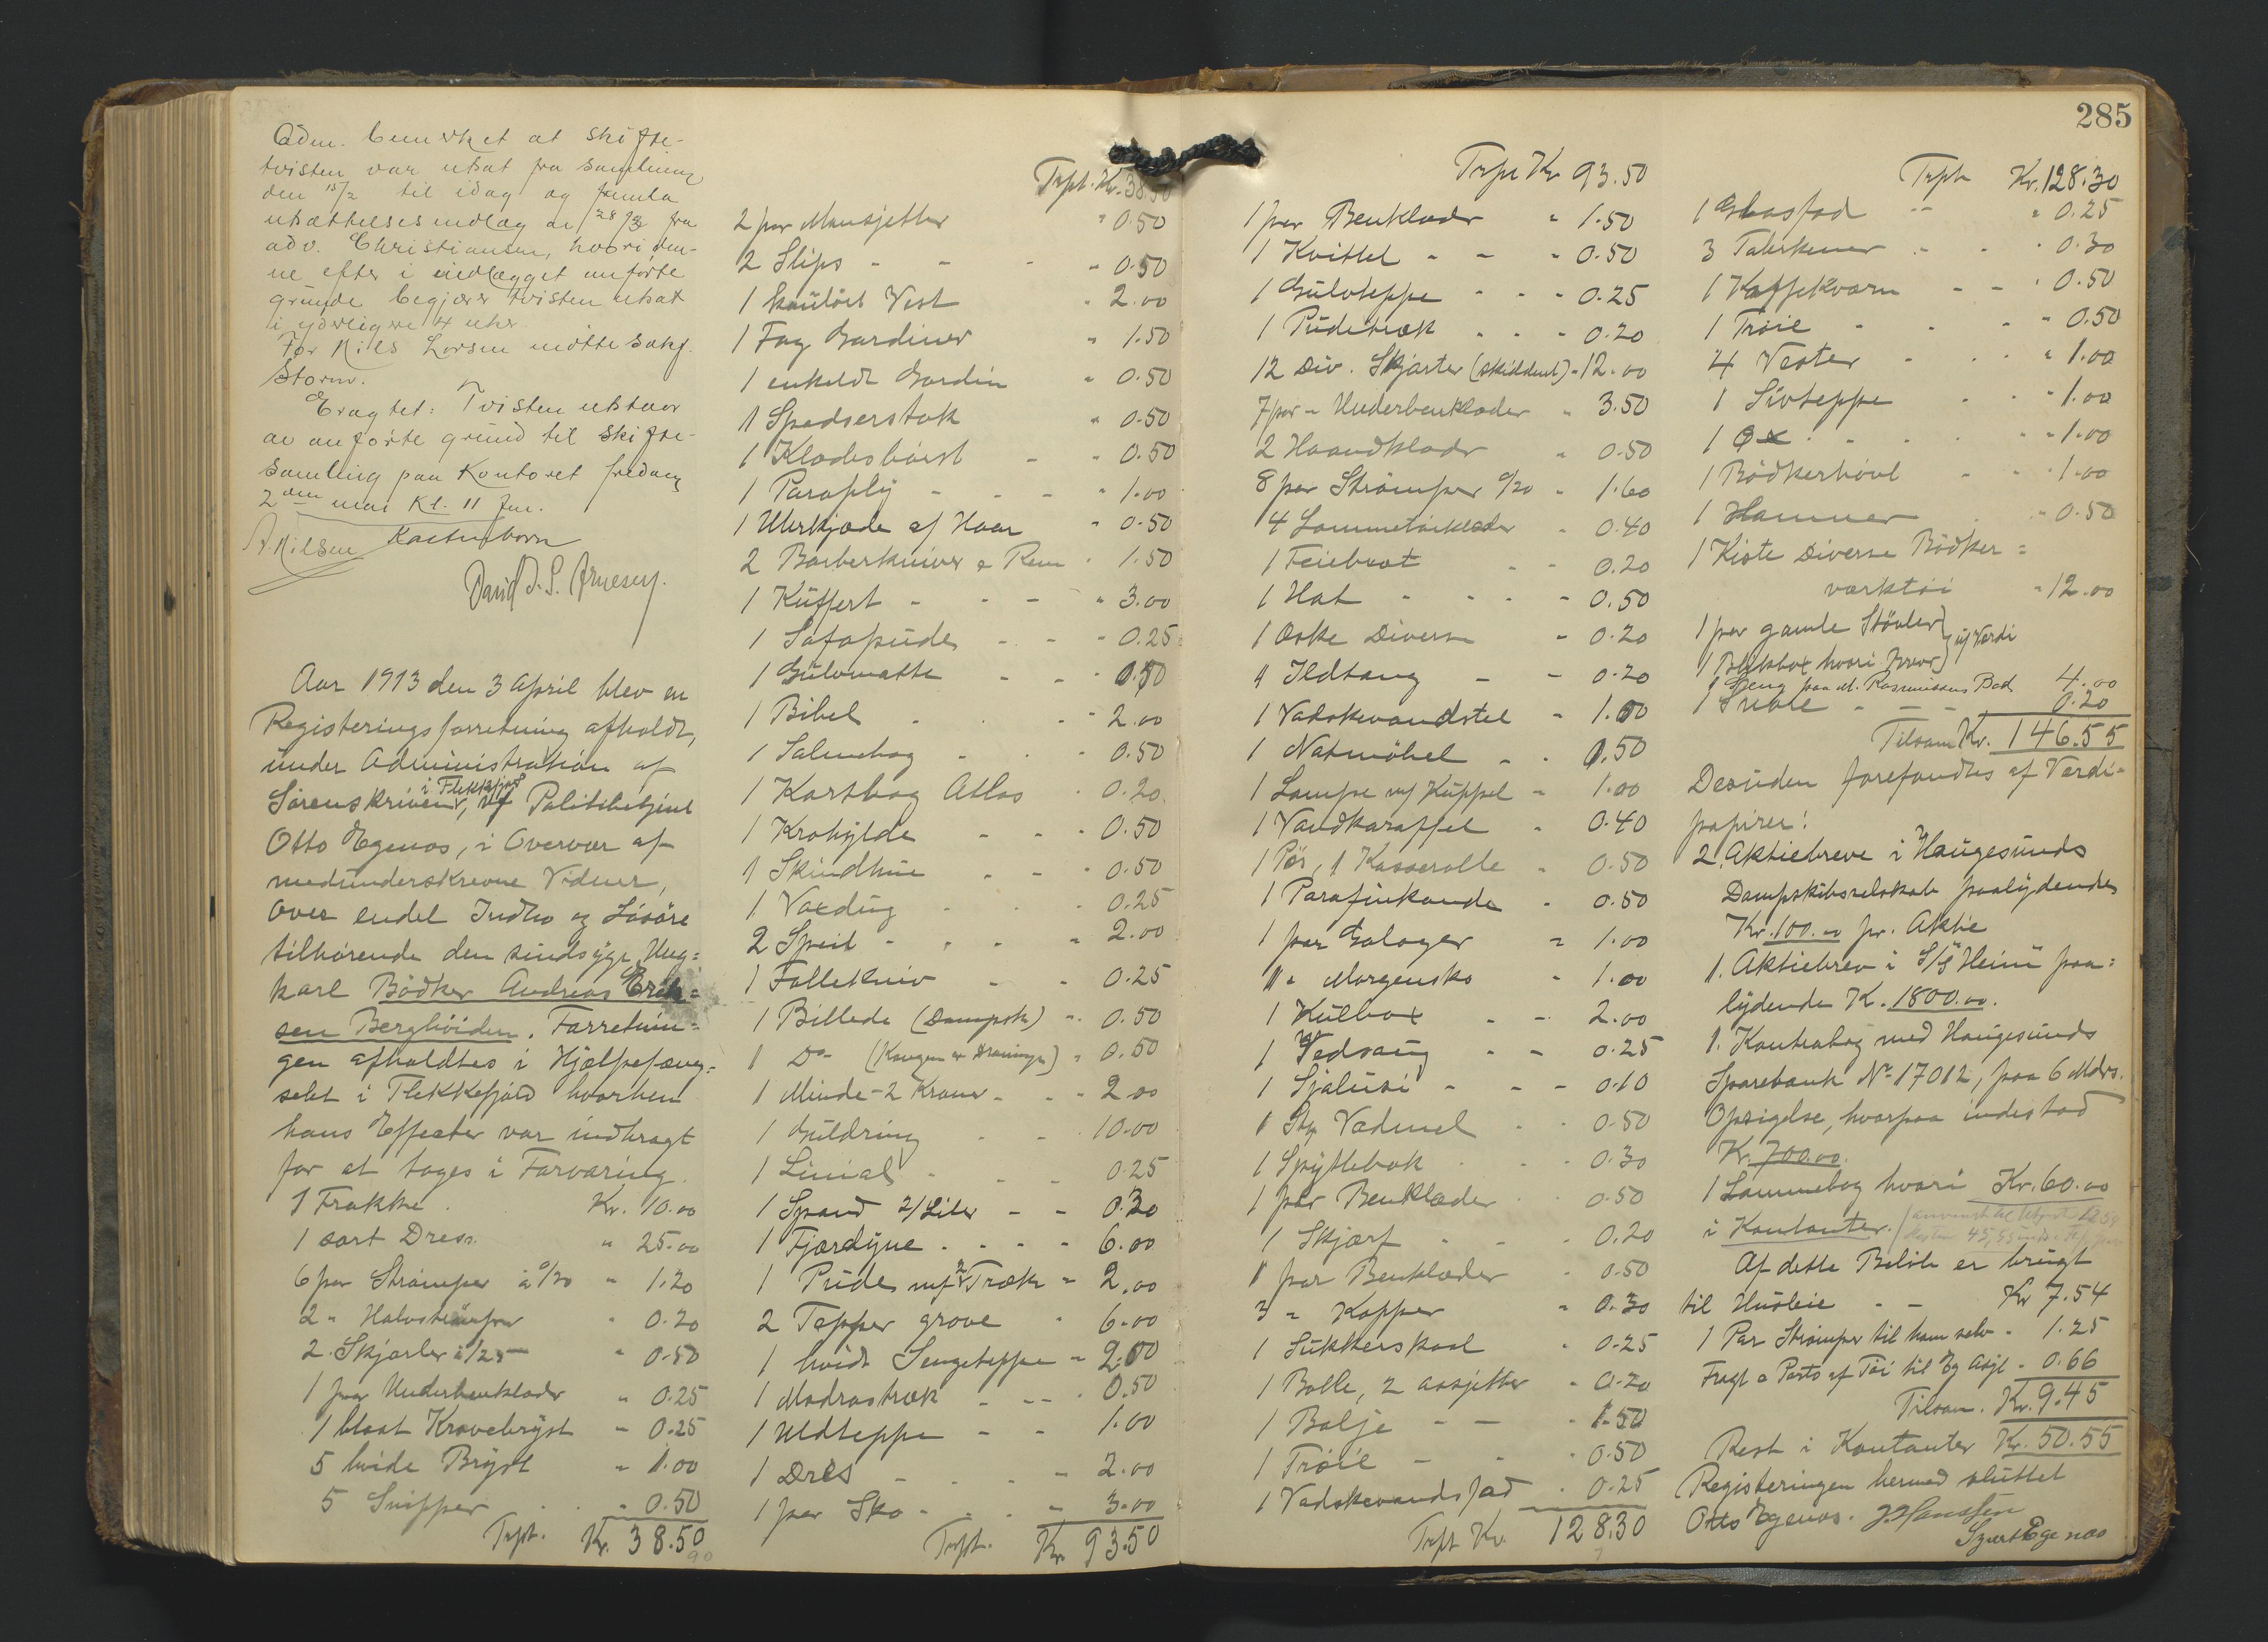 285
Adm. bemerket at skifte-
tvisten var utsat fra samling
den 15/2 til idag og fremla
utsættelsesindlæg av 28/3 fra
adv. Christiansen, hvori den-
ne efter i indlægget anførte
grunde begjærer tvisten utsat
i yderligere 4 uker.
For Nils Larsen møtte sakf.
Storm.
Eragtet: Tvisten utstaar
av anførte grund til skifte-
samling paa Kontoret fredag
2den mai Kl. 11 fm.
A. Nilsen
David S. Arnesen.
Aar 1913 den 3 April blev en
Registeringsforretning afholdt,
under Administration af
i Flekkefjord
Sorenskriveren, ved Politibetjent
Otto Egenæs, i Overvær af
medunderskrevne Vidner,
over endel Indbo og Løsøre
tilhørende den sindsyge Ung-
karl Bødker Andreas Erik-
sen Berghöiden. Forretnin-
gen afholdtes i Hjælpefæng-
selet i Flekkefjord hvorhen
hans Effecter var indbragt
for at tages i Forvaring.
1 Frakke . Kr. 10.00
1 sort Dress " 25.00
6 par Strømper à 0/20 " 1.20
2 " Halvstrømper " 0.20
2 Skjorter à /25 " 0.50
1 par Underbenklæder " 0.25
1 blaat Kravebryst " 0.25
5 hvide Bryst " 1.00
5 Snipper " 0.50
Trpt. Kr. 38.50
90
Trpt. Kr. 38.50
2 par Mansjetter " 0.50
2 Slips - - - " 0.50
1 kulört Vest " 2.00
1 Fag Gardiner " 1.50
1 enkeldt Gardin " 0.50
1 Spadserstok " 0.50
1 Klædesbörst - " 0.50
1 Paraply - - - " 1.00
1 Uhrkjæde af Haar " 0.50
2 Barberkniver & Rem " 1.50
1 Kuffert - - - " 3.00
1 Sofapude - - " 0.25
1 Gulvmatte - - " 0.50
1 Bibel - - - " 2.00
1 Salmebog - - " 0.50
1 Kartbog Atlas " 0.20
1 Krohylde - - - 0.50
1 Skindhue - - - 0.50
1 Voxdug - - - 0.25
2 Speil - - - - 2.00
1 Follekniv - - 0.25
1 Billede (Dampsk) - 0.50
1 Do (Kongen & Dronningen) - 0.50
1 Minde-2 Kroner - - 2.00
1 Guldring - - 10.00
1 Linial - - - 0.25
1 Spand 2/Liter - - 0.30
1 Fjærdyne - - - - 6.00
1 Pude m/ 2 Træk - 2.00
2 Tepper grove - 6.00
1 hvidt Sengeteppe - 2.00
1 Madrastræk - - - 0.50
1 Uldteppe - - 1.00
1 Dres - - - - 2.00
1 par Sko - - - 3.00
Trpt. Kr. 93.50
Trpt Kr 93.50
1 par Benklæder " 1.50
1 Kvittel - - " 0.50
1 Gulvteppe - - - 0.25
1 Pudetræk - - - 0.20
12 Div. Skjorter (skiddent) - 12.00
7 par - Underbenklæder " 3.50
2 Haandklæder " 0.50
8 par Strømper 0/20 - 1.60
4 Lommetörklæder - 0.40
1 Feiebrot - - 0.20
1 Hat - - - - 0.50
1 Æske Diverse - 0.20
1 Ildtang - - 0.20
1 Vadskevandstel - 1.00
1 Natmöbel - - 0.50
1 Lampe m/ Kuppel - 1.00
1 Vandkaraffel - 0.40
1 Pör, 1 Kasserolle - 0.50
1 Parafinkande - 0.50
1 par Galoger - 1.00
1 " Morgensko - 1.00
1 Kulbox - - 2.00
1 Vedsaug - - 0.25
1 Sjalusi - - - 0.10
1 Stk Vadmel - - 0.50
1 Spyttebak - - - 0.30
1 par Benklæder - - 0.50
1 Skjærf - - - 0.20
1 par Benklæder - 0.50
3 " Kopper - 0.30
1 Sukkerskaal - 0.25
1 Bolle, 2 assjetter - 0.20
1 Balje - - - 1.50
1 Tröie - - - 0.50
1 Vadskevandsfad - 0.25
Trpt Kr. 128.30
Trpt Kr. 128.30
1 Glasfad - - " 0.25
3 Talerkener - - " 0.30
1 Kaffekværn - - " 0.50
1 Tröie - - - - 0.50
4 Vester - - - " 1.00
1 Sivteppe - - - 1.00
1 Øx - - - - 1.00
1 Bödkerhövl - - - 1.00
1 Hammer - - 0.50
1 Kiste Diverse Bödker-
værktöi - 12.00
1 par gamle Stövler
1 Blikbox hvori Breve uf Verdi
1 Seng paa M. Rasmussens Bod 4.00
1 - - - 0.20
Tilsam Kr. 146.55
Desuden forefandtes af Verdi-
papirer:
2 Aktiebreve i Haugesunds
Dampskibsselskab paalydende
Kr. 100.00 pr. Aktie
1. Aktiebrev i S/S Heim paa-
lydende Kr. 1800.00.
1. Kontrabog med Haugesunds
Sparebank No 17012, paa 6 Mdrs.
Opsigelse, hvorpaa indestod
Kr. 700.00.
1 Lommebog hvori Kr. 60.00
i Kontanter.
Af dette Belöb er brugt
til Husleie - - Kr 7.54
1 Par Strömper til ham selv - 1.25
Fragt & Porto af Töi til Eg Asyl - 0.66
Tilsam. Kr. 9.45
Rest i Kontanter Kr. 50.55
Registeringen hermed sluttet
Otto Egenæs. J. Hanssen
Sigurd Egenæs